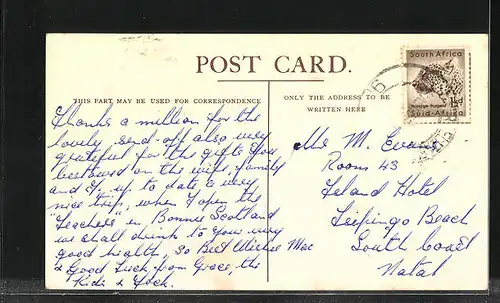 POST CARD.
THIS PART MAY BE USED FOR CORRESPONDENCE
ONLY THE ADDRESS TO BE
WRITTEN HERE
South Africa
1½d
Suid-Afrika
Thanks a million for the
lovely send-off also very
grateful for the gifts You
bestowed on the wife, family
and I. up to date a very
nice trip, when I open the
"Teachers" in Bonnie Scotland
we shall drink to your very
good health, So Best Wishes Mac
& Good Luck from Grace, the
Kids & Jock.
M. Evans
Room 43
Island Hotel
Isipingo Beach
South Coast
Natal